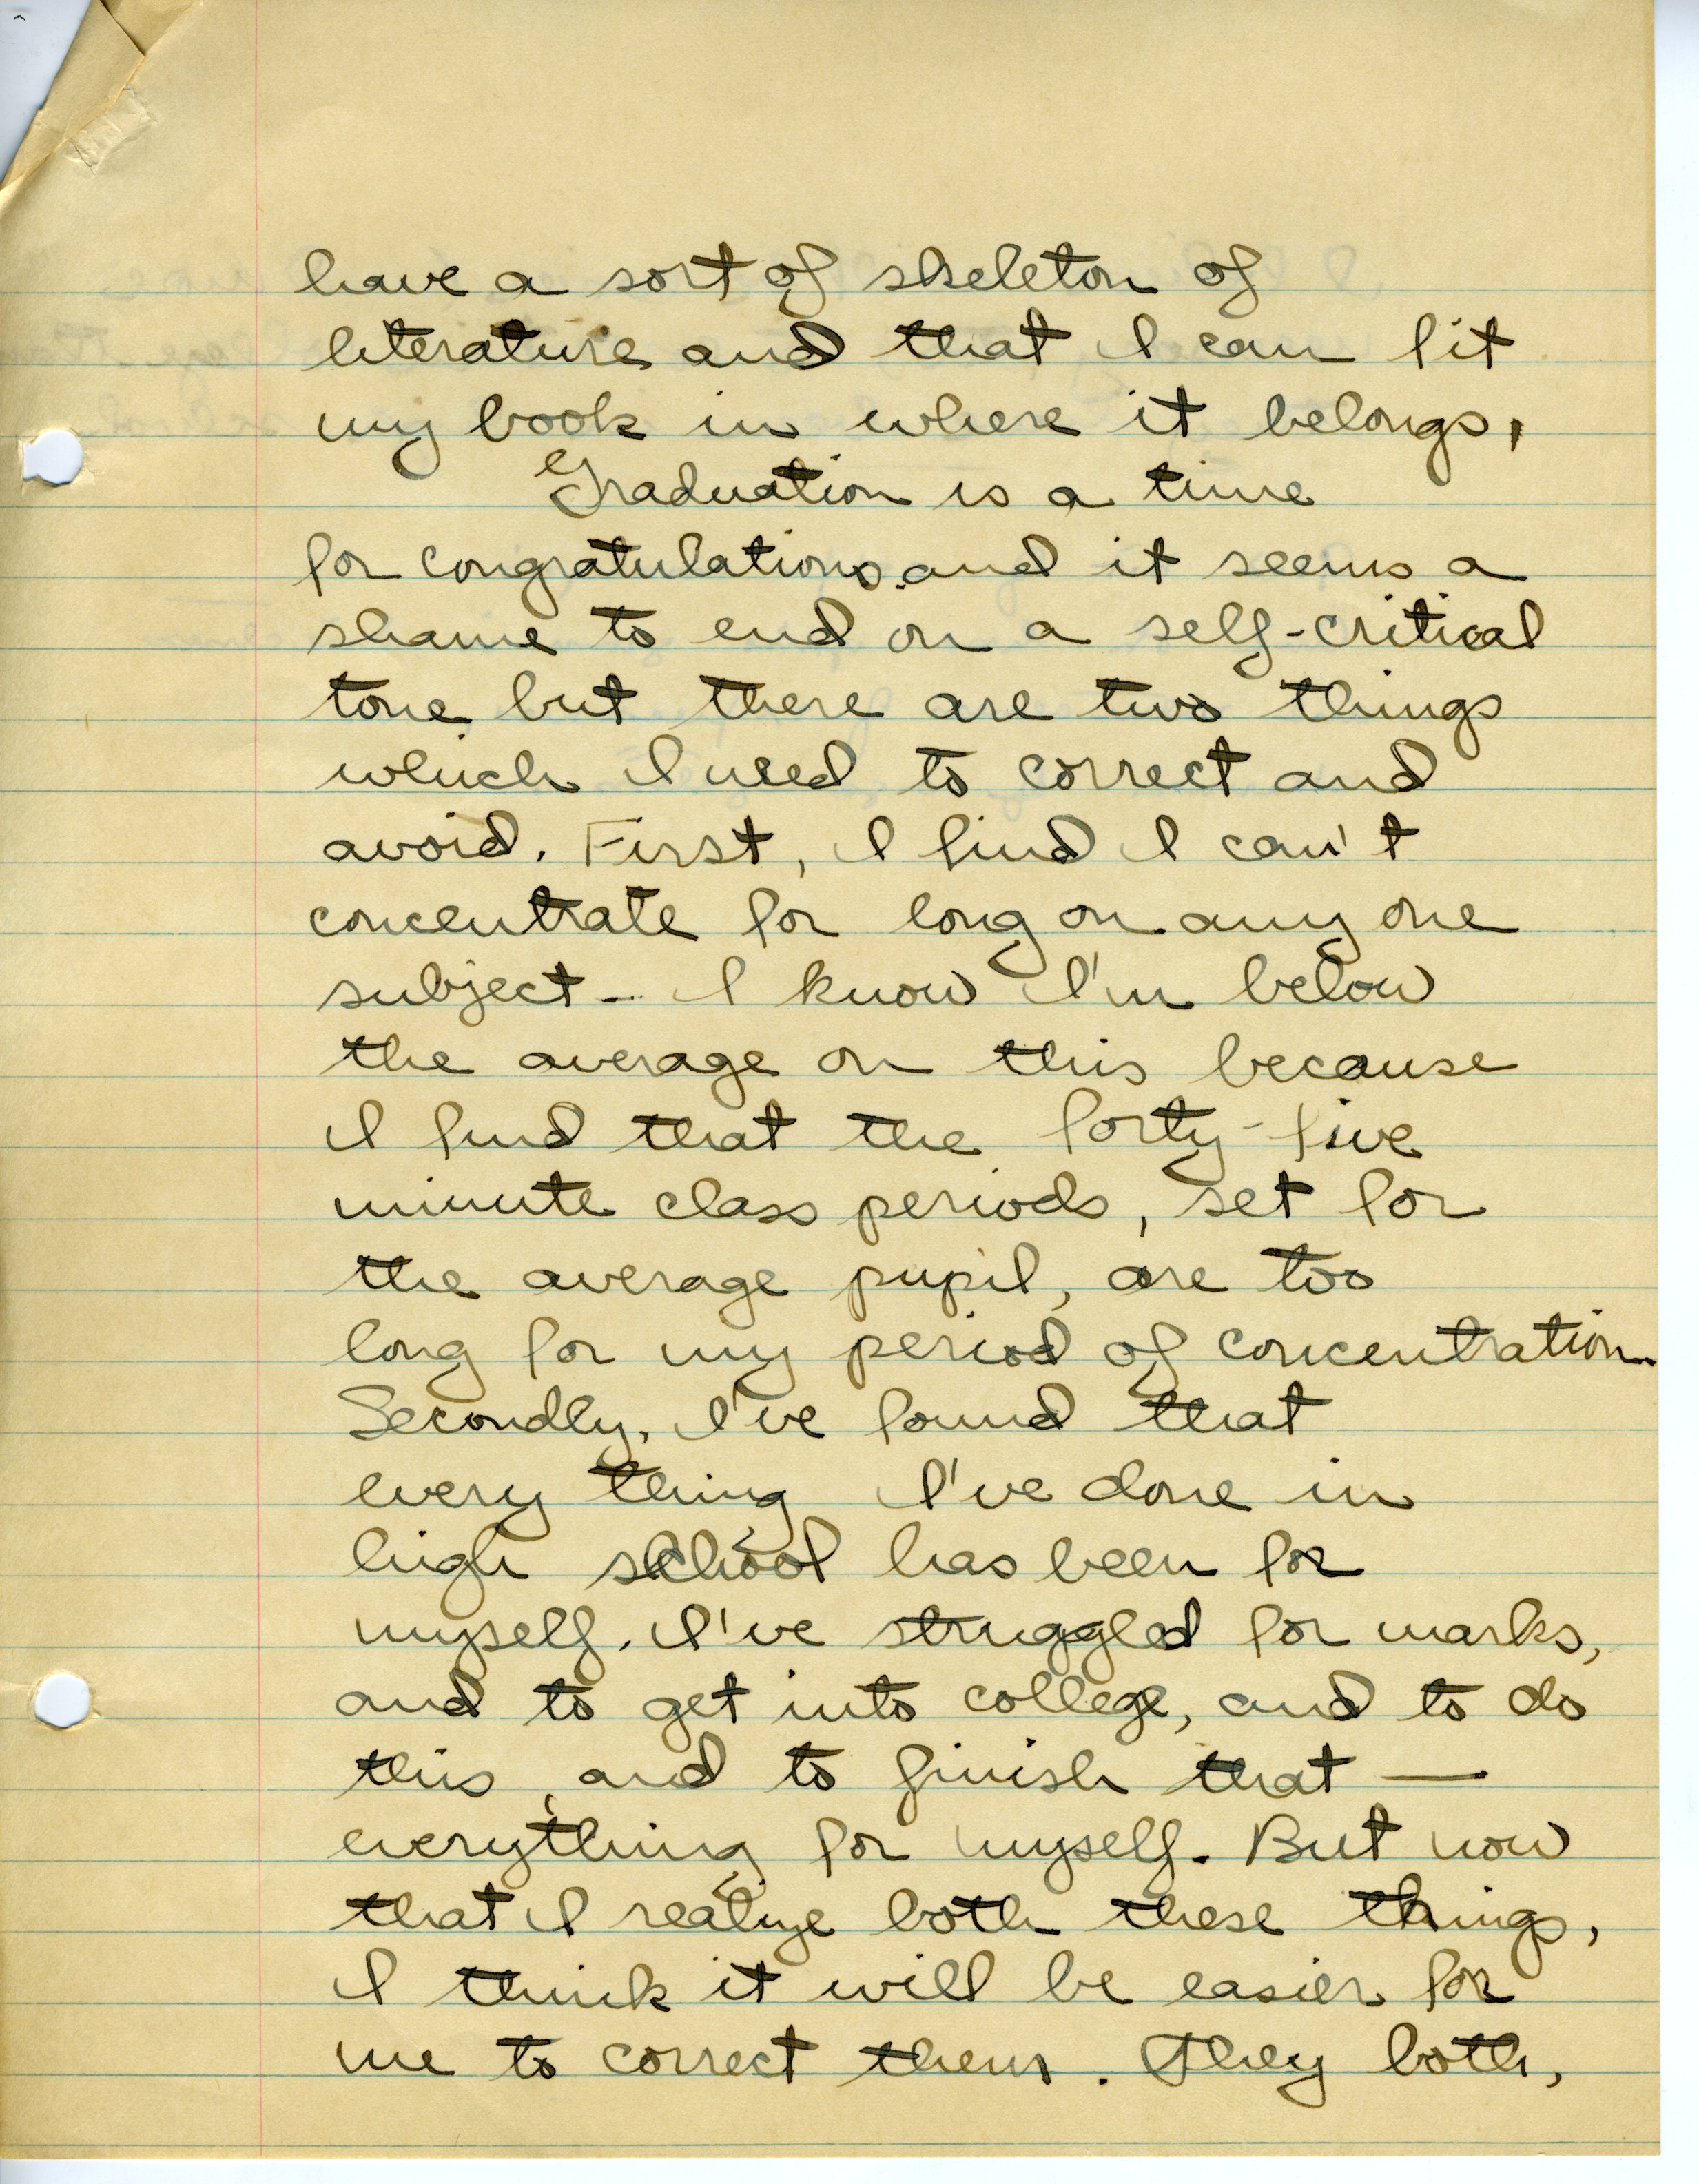 have a sort of skeleton of
literature and that I can fit
my book in where it belongs.
Graduation is a time
for congratulations and it seems a
shame to end on a self-critical
tone but there are two things
which I need to correct and
avoid. First, I find I can't
concentrate for long on any one
subject - I know I'm below
the average on this because
I find that the forty-five
minute class periods, set for
the average pupil, are too
long for my period of concentration.
Secondly, I've found that
every thing I've done in
high school has been for
myself. I've struggled for marks,
and to get into college, and to do
this, and to finish that —
everything for myself. But now
that I realize both these things,
I think it will be easier for
me to correct them. They both,